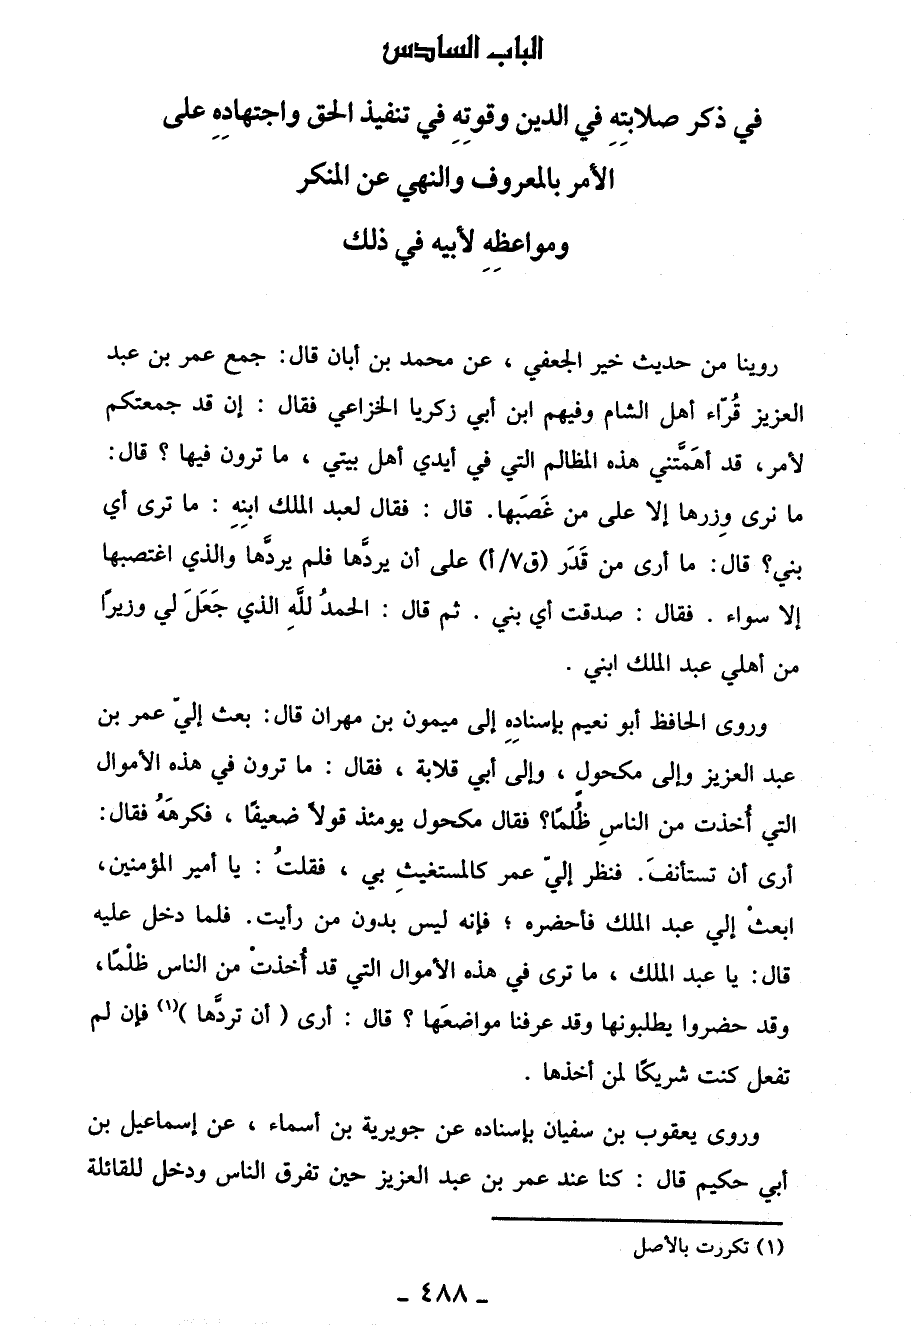 الباب السادس
في ذكر صلابتِهِ في الدين وقوتِهِ في تنفيذ الحق واجتهادِهِ على
الأمر بالمعروف والنهي عن المنكر
ومواعظِهِ لأبيه في ذلك
روينا من حديث خير الجعفي ، عن محمد بن أبان قال: جمع عمر بن عبد
العزيز قُرّاء أهل الشام وفيهم ابن أبي زكريا الخزاعي فقال : إن قد جمعتكم
لأمر، قد أهَمَّتني هذه المظالم التي في أيدي أهل بيتي ، ما ترون فيها ؟ قال:
ما نرى وِزرها إلا على من غَصَبها. قال : فقال لعبد الملك ابنِهِ : ما ترى أي
بني؟ قال: ما أرى من قَدَر (ق٧/أ) على أن يردَّها فلم يردَّها والذي اغتصبها
إلا سواء . فقال : صدقت أي بني . ثم قال : الحمدُ للَّهِ الذي جَعَلَ لي وزيرًا
من أهلي عبد الملك ابني .
وروى الحافظ أبو نعيم بإسنادِهِ إلى ميمون بن مهران قال: بعث إليّ عمر بن
عبد العزيز وإلى مكحولٍ ، وإلى أبي قلابة ، فقال : ما ترون في هذه الأموال
التي أُخذت من الناسِ ظُلمًا؟ فقال مكحول يومئذ قولاً ضعيفًا ، فكرهَهُ فقال:
أرى أن تستأنفَ. فنظر إليّ عمر كالمستغيثِ بي ، فقلتُ : يا أمير المؤمنين،
ابعثْ إلي عبد الملك فأحضره ؛ فإنه ليس بدون من رأيت. فلما دخل عليه
قال: يا عبد الملك ، ما ترى في هذه الأموال التي قد أُخذتْ من الناس ظلْمًا،
وقد حضروا يطلبونها وقد عرفنا مواضعَها ؟ قال : أرى ( أن تردَّها )(١) فإن لم
تفعل كنت شريكًا لمن أخذها .
وروى يعقوب بن سفيان بإسناده عن جويرية بن أسماء ، عن إسماعيل بن
أبي حكيم قال : كنا عند عمر بن عبد العزيز حين تفرق الناس ودخل للقائلة
(١) تكررت بالأصل
ـ ٤٨٨ ـ